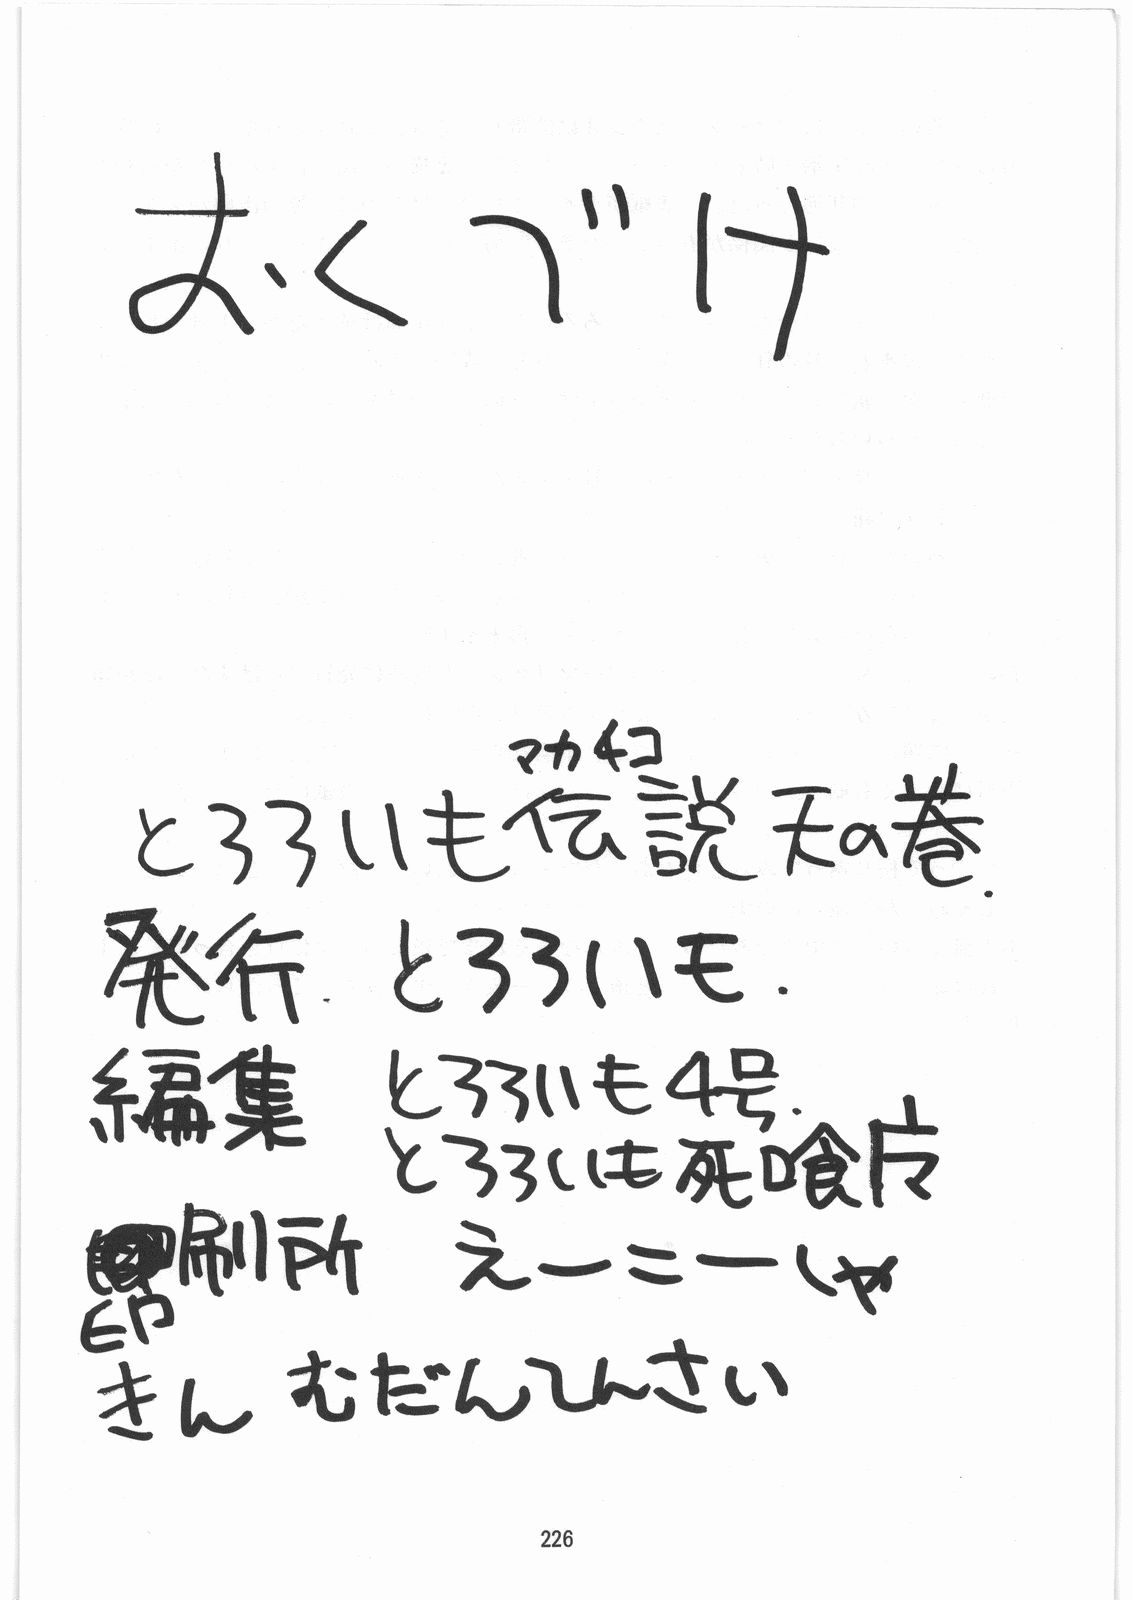 おくづけ
マカチコ
とろろいも伝説 天の巻.
発行. とろろいも.
編集 とろろいも4号.
とろろいも死喰片
刷所 えーこーしゃ
印
きん むだんてんさい
226